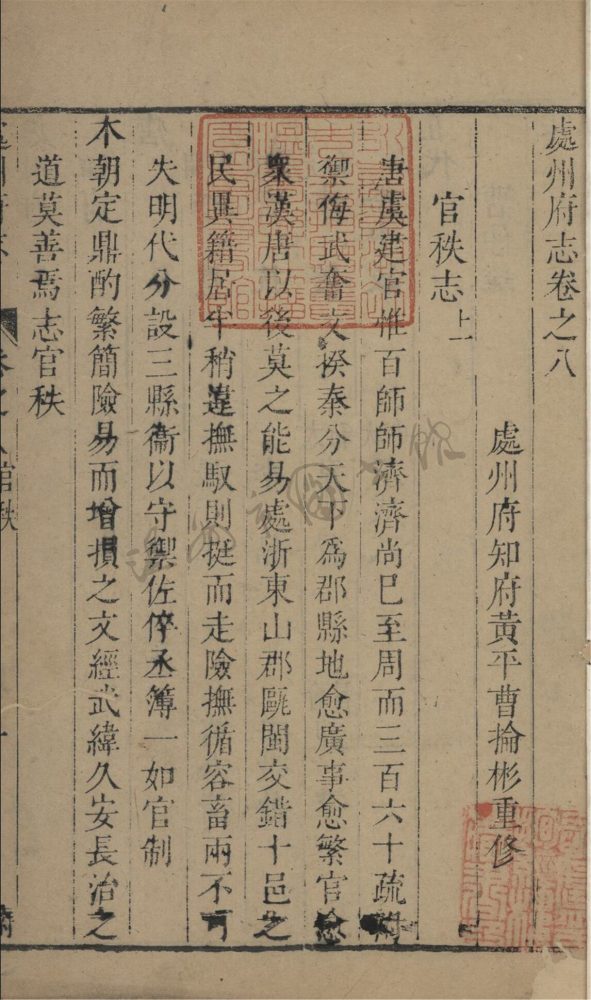 處州府志卷之八
處州府知府黃平曹掄彬重修
官秩志上
唐虞建官惟百師師濟濟尚已至周而三百六十疏附
禦侮武奮文揆秦分天下為郡縣地愈廣事愈繁官愈
衆漢唐以後莫之能易處浙東山郡甌閩交錯十邑之
民異籍居牢稍違撫馭則挺而走險撫循容畜兩不可
失明代分設三縣衞以守禦佐倅丞簿一如官制
本朝定鼎酌繁簡險易而增損之文經武緯久安長治之
道莫善焉志官秩
卷之八官秩